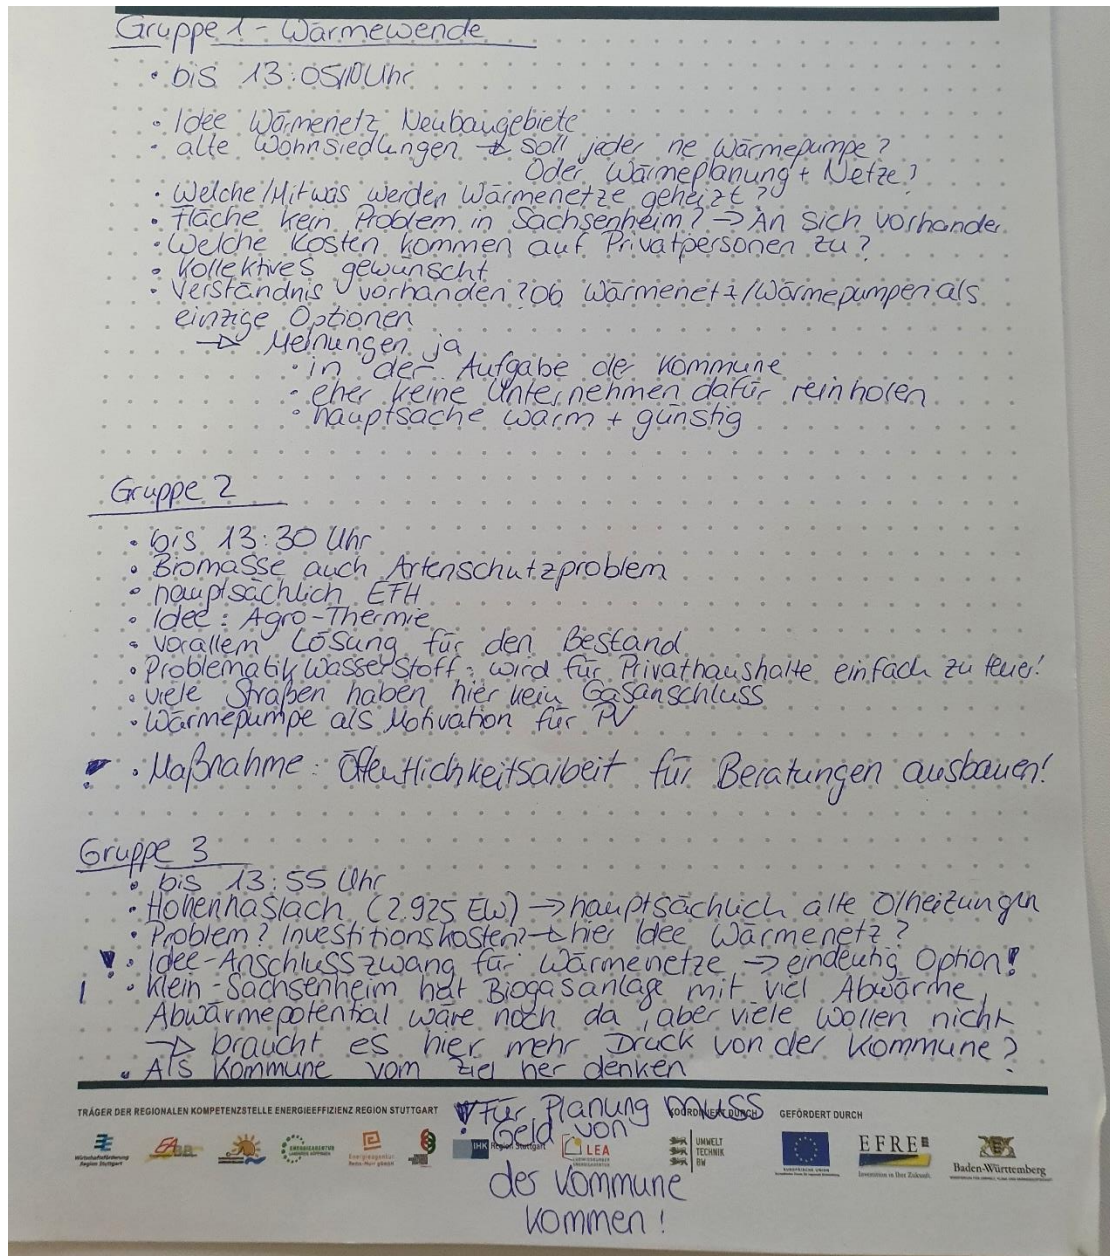 Gruppe 1 - Wärmewende
• bis 13:05/10 Uhr
• Idee Wärmenetz Neubaugebiete
• alte Wohnsiedlungen → soll jeder ne Wärmepumpe?
Oder Wärmeplanung + Netze?
• Welche/Mit was werden Wärmenetze geheizt?
• Fläche kein Problem in Sachsenheim? → An sich vorhanden
• Welche Kosten kommen auf Privatpersonen zu?
• Kollektives gewünscht
• Verständnis vorhanden? Ob Wärmenetz/Wärmepumpen als
einzige Optionen
→ Meinungen ja
• in der Aufgabe der Kommune
• eher keine Unternehmen dafür reinholen
• hauptsache warm + günstig
Gruppe 2
• bis 13:30 Uhr
• Biomasse auch Artenschutzproblem
• hauptsächlich EFH
• Idee: Agro-Thermie
• vorallem Lösung für den Bestand
• Problematik Wasserstoff: wird für Privathaushalte einfach zu teuer!
• viele Straßen haben hier kein Gasanschluss
• Wärmepumpe als Motivation für PV
! • Maßnahme: Öffentlichkeitsarbeit für Beratungen ausbauen!
Gruppe 3
• bis 13:55 Uhr
• Hohenhaslach (2.925 EW) → hauptsächlich alte Ölheizungen
• Problem? Investitionskosten? → hier Idee Wärmenetz?
! • Idee - Anschlusszwang für Wärmenetze → eindeutig Option!
! • Klein-Sachsenheim hat Biogasanlage mit viel Abwärme,
Abwärmepotential wäre noch da, aber viele wollen nicht
→ braucht es hier mehr Druck von der Kommune?
• Als Kommune vom Ziel her denken
! Für Planung muss
Geld von
der Kommune
kommen!
TRÄGER DER REGIONALEN KOMPETENZSTELLE ENERGIEEFFIZIENZ REGION STUTTGART
KOORDINIERT DURCH
GEFÖRDERT DURCH
Wirtschaftsförderung
Region Stuttgart
IHK Region Stuttgart
LEA
UMWELT
TECHNIK
BW
EUROPÄISCHE UNION
EFRE
Investition in Ihre Zukunft.
Baden-Württemberg